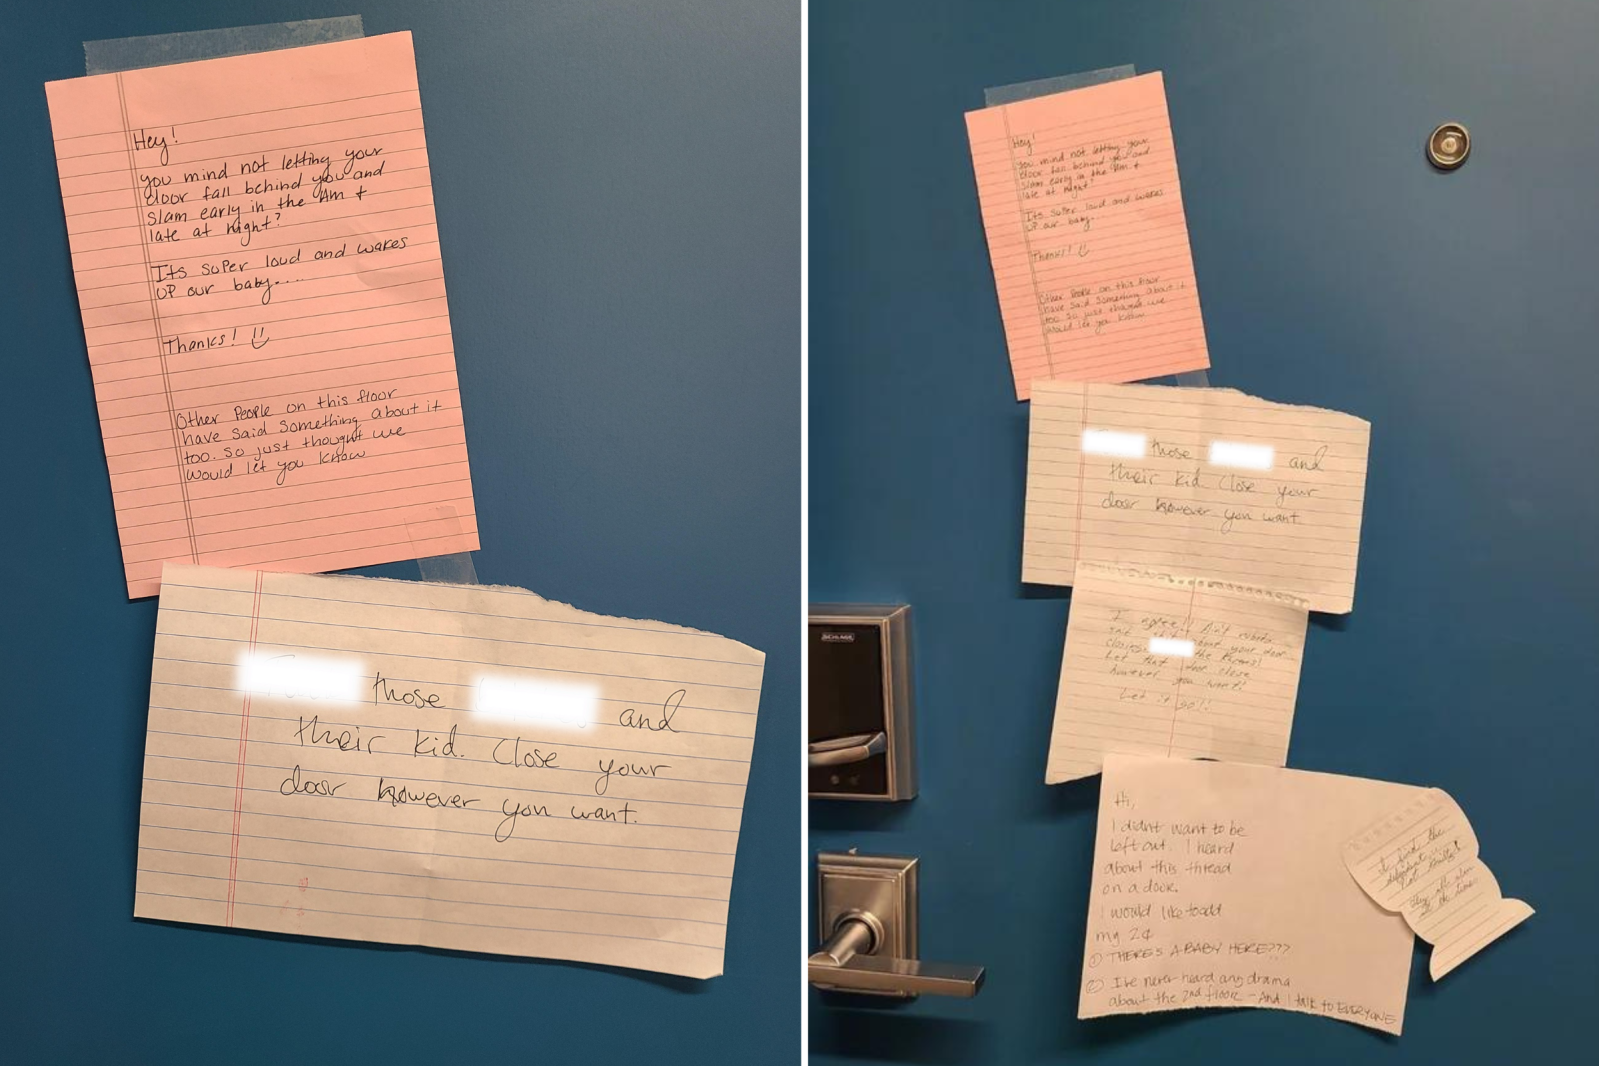 Hey!
you mind not letting your
door fall behind you and
slam early in the Am +
late at night?
Its super loud and wakes
up our baby....
Thanks!
Other People on this floor
have said something about it
too. so just thought we
would let you know
those and
their kid. Close your
door however you want.
Hey!
you mind not letting your
door fall behind you and
slam early in the Am +
late at night?
Its super loud and wakes
up our baby....
Thanks!
Other People on this floor
have said something about it
too so just thought we
would let you know
those and
their kid. Close your
door however you want
I agree!
your door
the
Let that door close
however you want!
Let it go!!
SCHLAGE
Hi,
I didn't want to be
left out. I heard
about this thread
on a door.
I would like to add
my 2¢
① THERE'S A BABY HERE???
② I've never heard any drama
about the 2nd floor - And I talk to EVERYONE
I find the
not guilty